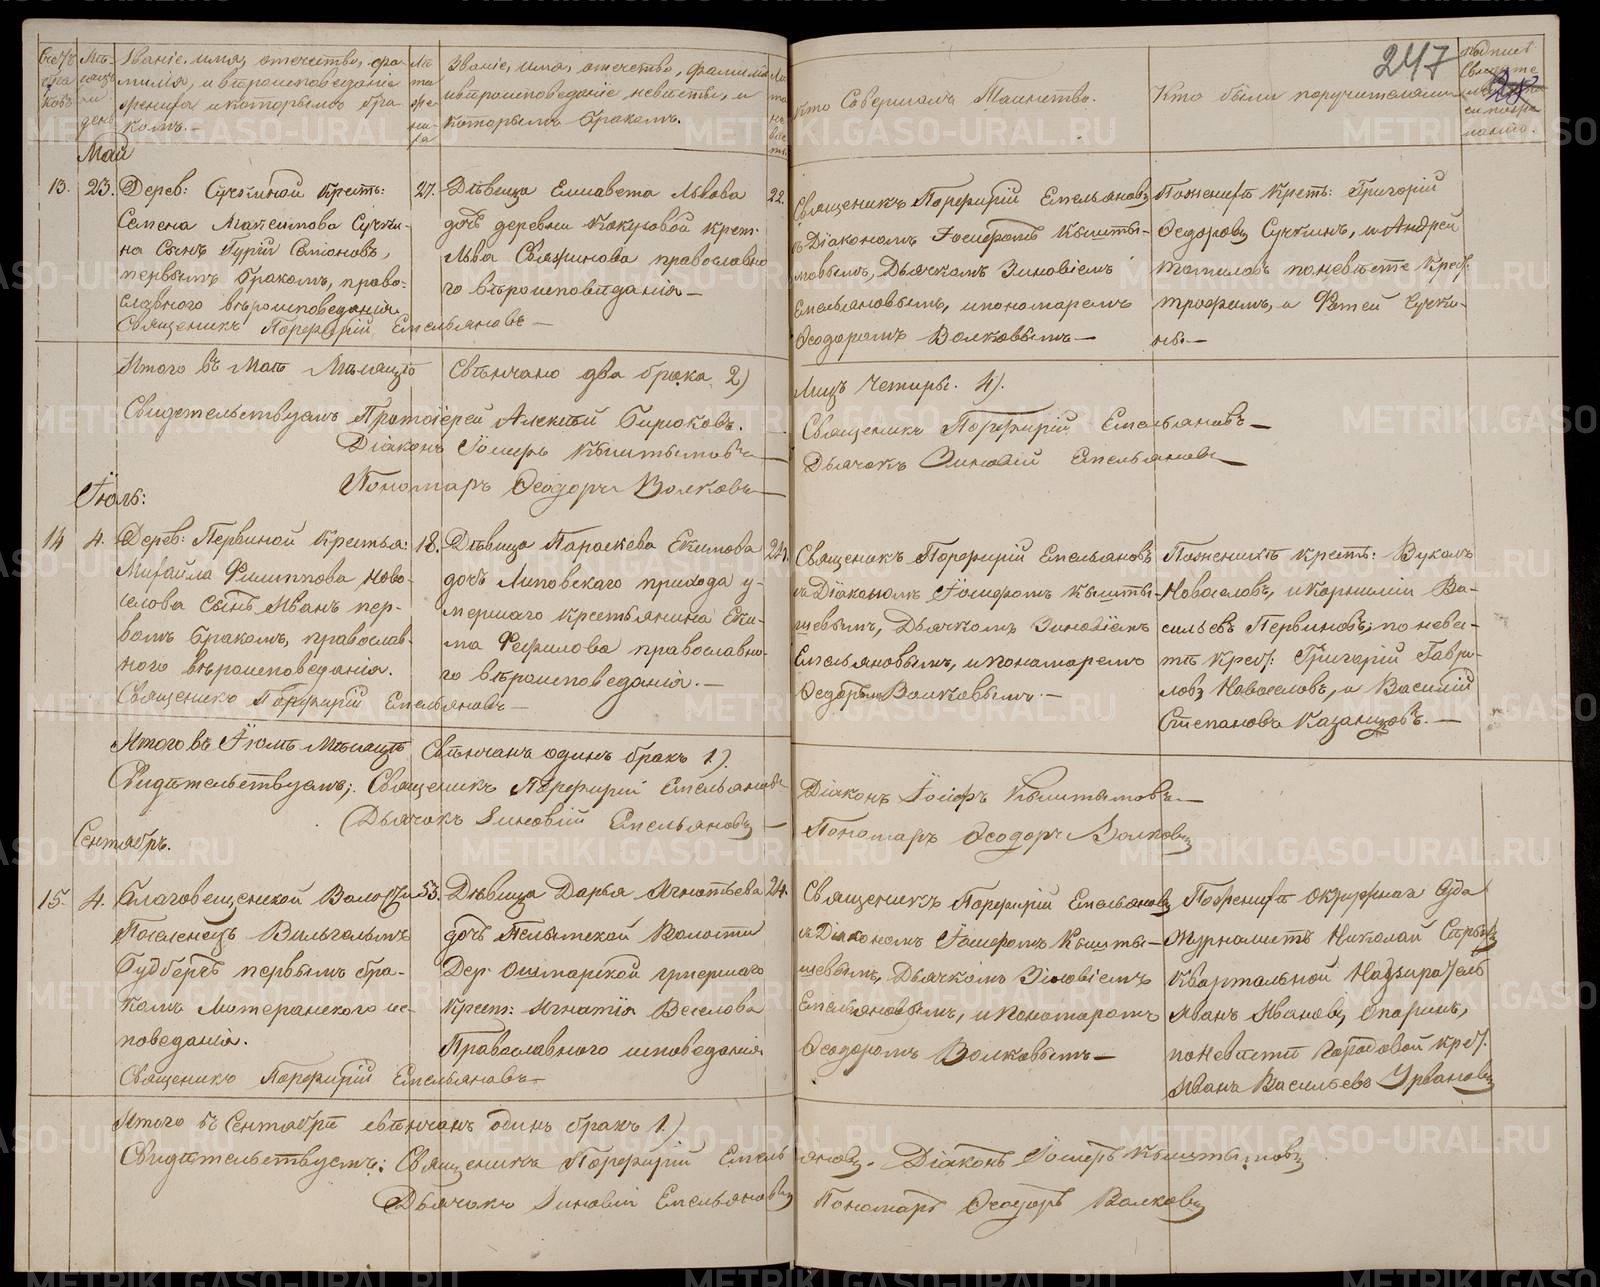 247
28
Счетъ браковъ
Мѣсяцъ и день
Званіе, имя, отечество, фамилія, и вѣроисповѣданіе жениха и которымъ бракомъ.
Лѣта жениха
Званіе, имя, отечество, фамилія и вѣроисповѣданіе невѣсты, и которымъ бракомъ.
Лѣта невѣсты
Кто Совершалъ Таинство.
Кто были поручителями
Май
13.
23.
Дерев: Сучкиной Крестъ:
Семена Ма Сучки-
на Сынъ Гурій Семіоновъ,
первымъ бракомъ, право-
славнаго вѣроисповеданія
Священикъ Порфирій Емельяновъ—
27.
Дѣвица Елисавета Львова
дочь деревни Кокуловой крест:
Льва православно
го вѣроисповѣданія—
22.
Священикъ Порфирій Емельяновъ
съ Діакономъ Іосифомъ Кышты-
мовымъ, Дьячкомъ Зиновіемъ
Емельяновымъ, и пономаремъ
Ѳеодоромъ Волковымъ—
По женихѣ Крест: Григорій
Ѳедоровъ Сучкинъ, и Андрей
Томиловъ по невѣсте Крест:
Трофимъ, и Фотей Сучки-
ны—
Итого въ Маѣ Мѣсяцѣ Свѣнчано два брака 2)
Лицъ Четыры. 4).
Свидетельствуемъ Протоіерей Алексѣй Бирюковъ.
Діаконъ Іосифъ Кыштымовъ—
Пономарь Ѳеодоръ Волковъ—
Священикъ Порфирій Емельяновъ—
Дьячокъ Зиновій Емельяновъ
Іюль:
14
4.
Дерев: Первиной Крестья:
Михайла Филиппова Ново-
селова Сынъ Иванъ пер-
вымъ бракомъ, православ-
ного вѣроисповеданія.
Священикъ Порфирій Емельяновъ—
18.
Дѣвица Параскева Екимова
дочь Липовскаго прихода у-
мершаго Крестьянина Еки-
ма Фефилова православно-
го вѣроисповеданія.—
24.
Священикъ Порфирій Емельяновъ
съ Діакономъ Іосифомъ Кышты-
мовымъ, Дьячкомъ Зиновіемъ
Емельяновымъ, и пономаремъ
Ѳедоромъ Волковымъ.—
По женихѣ крестъ: Вуколъ
Новоселовъ, и Корнилій Ва-
сильевъ Первиновъ; по невѣ-
стѣ Крест: Григорій Гаври-
ловъ Новоселовъ, и Василій
Степановъ Казанцовъ.—
Итого въ Іюлѣ Мѣсяцѣ Свѣнчанъ одинъ бракъ 1).
Свидѣтельствуемъ; Священикъ Порфирій Емельяновъ
Дьячокъ Зиновій Емельяновъ—
Діаконъ Іосифъ Кыштымовъ—
Пономарь Ѳеодоръ Волковъ
Сентябрь.
15.
4.
Благовещенской Волости
Поселенецъ Вильгельмъ
Будбергъ первымъ бра-
комъ Лютеранскаго ис-
поведанія.
Священикъ Порфирій Емельяновъ—
53.
Дѣвица Дарья Игнатьева
дочь Пелымской Волости
Дер. Ошмарской умершаго
Крест: Игнатія Веселова
Православного исповеданія
24.
Священикъ Порфирій Емельяновъ
съ Діакономъ Іосифомъ Кышты-
мовымъ, Дьячкомъ Зиновіемъ
Емельяновымъ, и пономаремъ
Ѳеодоромъ Волковымъ—
По женихѣ Окружнаго Суда
Журналистъ Николай
Квартальной Надзиратель
Иванъ Ивановъ Опаринъ,
по невѣсти Городовой крест.
Иванъ Васильевъ Урвановъ
Итого въ Сентябрѣ свѣнчанъ одинъ бракъ 1)
Свидѣтельствуемъ: Священикъ Порфирій Емельяновъ. Діаконъ Іосифъ Кыштымовъ
Дьячокъ Зиновій Емельяновъ Пономарь Ѳеодоръ Волковъ
METRIKI.GASO-URAL.RU